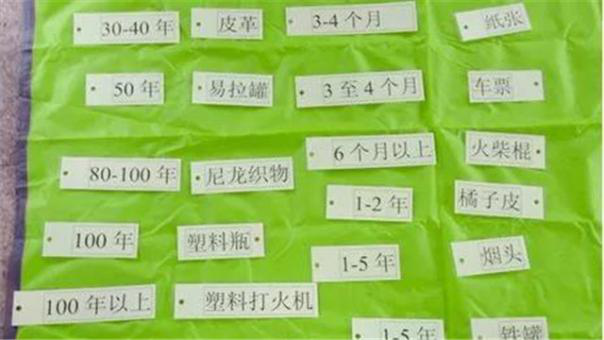 30-40年 皮革 3-4个月 纸张
50年 易拉罐 3至4个月 车票
80-100年 尼龙织物 6个月以上 火柴棍
100年 塑料瓶 1-2年 橘子皮
100年以上 塑料打火机 1-5年 烟头
1-5年 铁罐